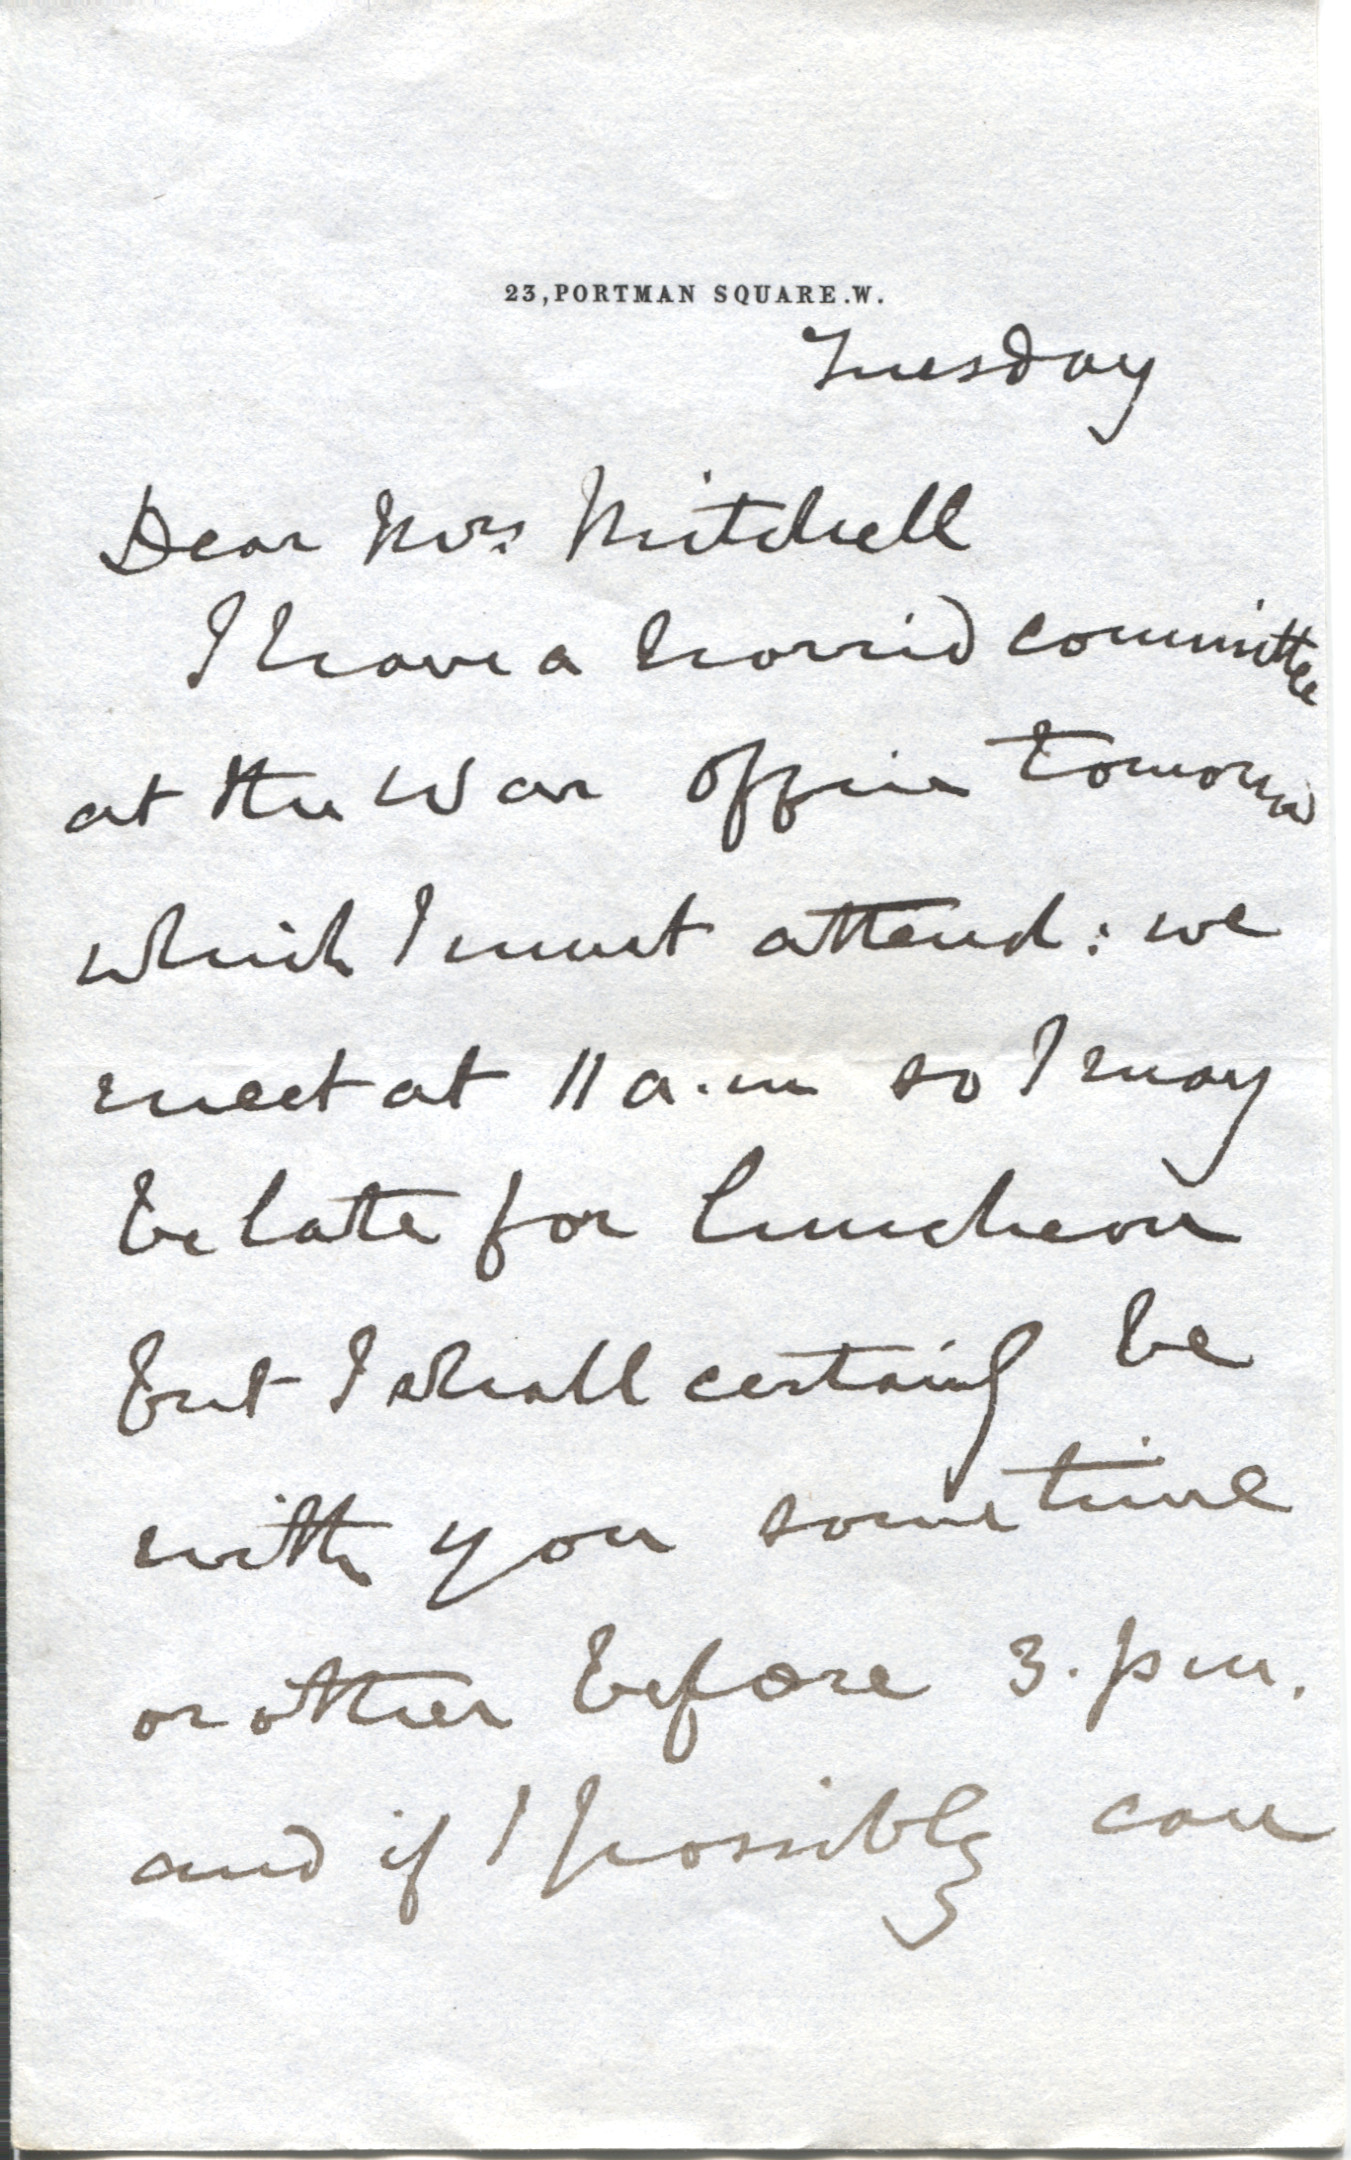 23, PORTMAN SQUARE. W.
Tuesday
Dear Mrs. Mitchell
I have a horrid committee
at the War Office tomorrow
which I must attend: we
meet at 11 a.m so I may
be late for luncheon
but I shall certainly be
with you sometime
or other before 3. pm.
and if I possibly can